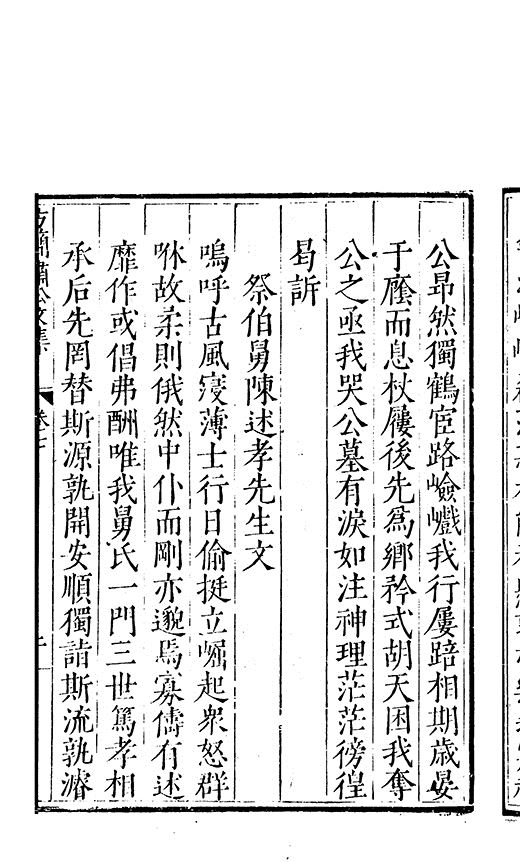 公昻然獨鶴宦路嶮巇我行屢踣相期歲晏
于廕而息杖屨後先爲鄉矜式胡天困我奪
公之亟我哭公墓有淚如注神理茫茫徬徨
曷訴
祭伯舅陳述孝先生文
嗚呼古風寖薄士行日偷挺立崛起衆怒羣
咻故柔則俄然中仆而剛亦邈焉寡儔有述
靡作或倡弗酬唯我舅氏一門三世篤孝相
承后先罔替斯源孰開安順獨詣斯流孰濬
方簡肅公文集
卷十